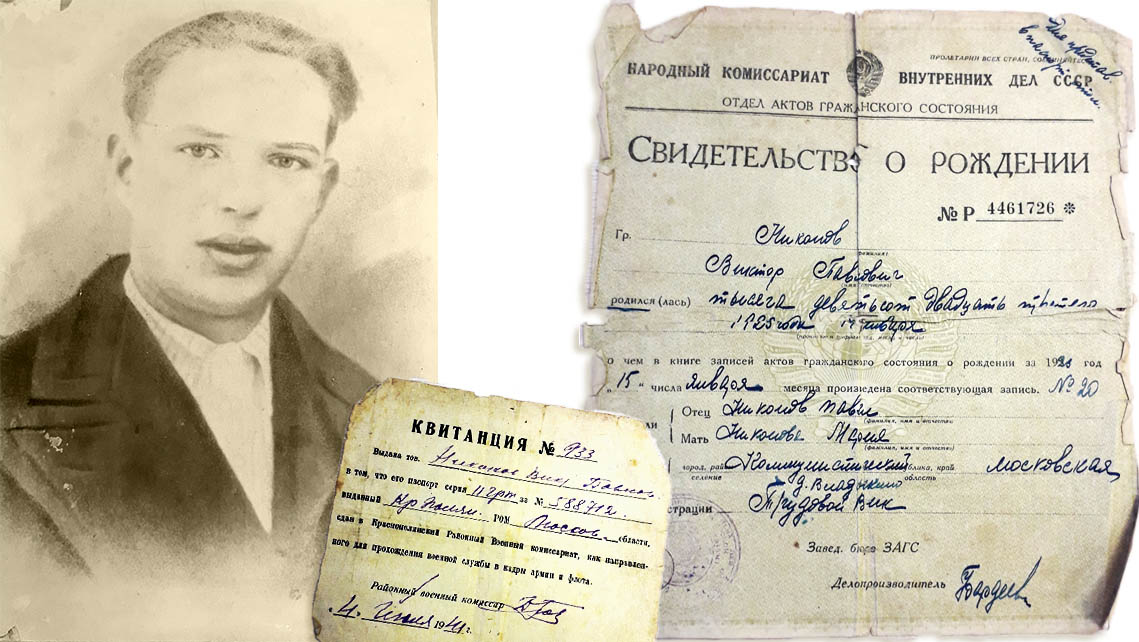 КВИТАНЦИЯ № 933
Выдана тов.
в том, что его паспорт серия за № 588712.
выданный РОМ области,
сдан в Краснополянский Районный Военный комиссариат, как направлен-
ного для прохождения военной службы в кадры армии и флота.
Районный военный комиссар
1941 г.
ПРОЛЕТАРИИ ВСЕХ СТРАН, СОЕДИНЯЙТЕСЬ
НАРОДНЫЙ КОМИССАРИАТ ВНУТРЕННИХ ДЕЛ СССР
ОТДЕЛ АКТОВ ГРАЖДАНСКОГО СОСТОЯНИЯ
СВИДЕТЕЛЬСТВО О РОЖДЕНИИ
№ Р 4461726 *
Гр. Никонов
(фамилия)
Виктор Павлович
(имя, отчество)
родился (лась) тысяча девятьсот двадцать третьего
года января
о чем в книге записей актов гражданского состояния о рождении за 1923 год
„15" числа января месяца произведена соответствующая запись. № 20
Отец Никонов Павел
(фамилия, имя и отчество)
ли Мать Никонова Мария
(фамилия, имя и отчество)
город, рай Коммунистический блика, край Московская
селение область
д.
страции Трудовой
Завед. бюро ЗАГС
Делопроизводитель